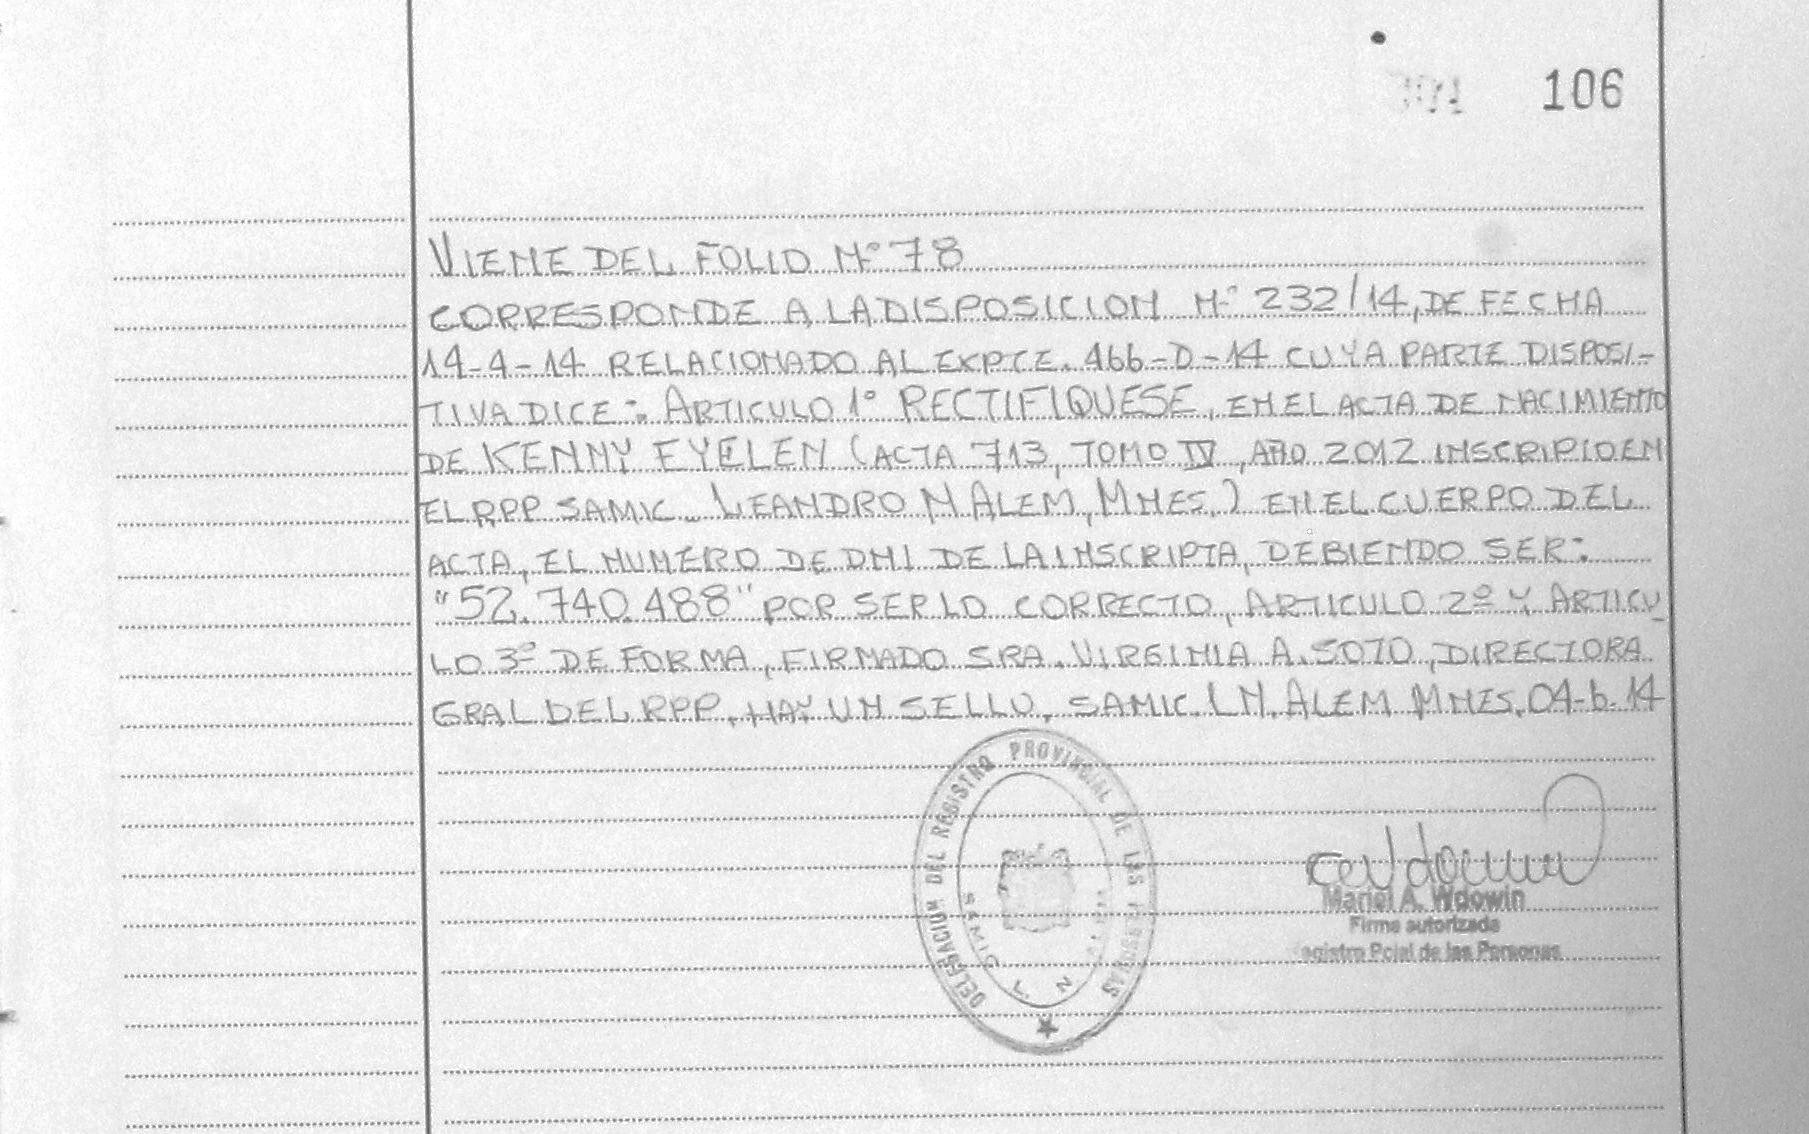 106
VIENE DEL FOLIO Nº 78
CORRESPONDE A LA DISPOSICION Nº 232/14, DE FECHA
14-4-14 RELACIONADO AL EXPTE. 466-D-14 CUYA PARTE DISPOSI-
TIVA DICE: ARTICULO 1º RECTIFIQUESE, EN EL ACTA DE NACIMIENTO
DE KENNY EYELEN (ACTA 713, TOMO IV, AÑO 2012 INSCRIPIDO EN
EL RPP SAMIC LEANDRO N ALEM, MNES.) EN EL CUERPO DEL
ACTA, EL NUMERO DE DNI DE LA INSCRIPTA, DEBIENDO SER:
"52.740.488" POR SER LO CORRECTO, ARTICULO 2º Y ARTICU
LO 3º DE FORMA, FIRMADO SRA. VIRGINIA A. SOTO, DIRECTORA
GRAL DEL RPP, HAY UN SELLO, SAMIC. L N. ALEM MNES. 04-6-14
DELEGACION DEL REGISTRO PROVINCIAL DE LAS PERSONAS
SAMIC
Mariel A. Wdowin
Firma autorizada
egistro Pcial de las Personas